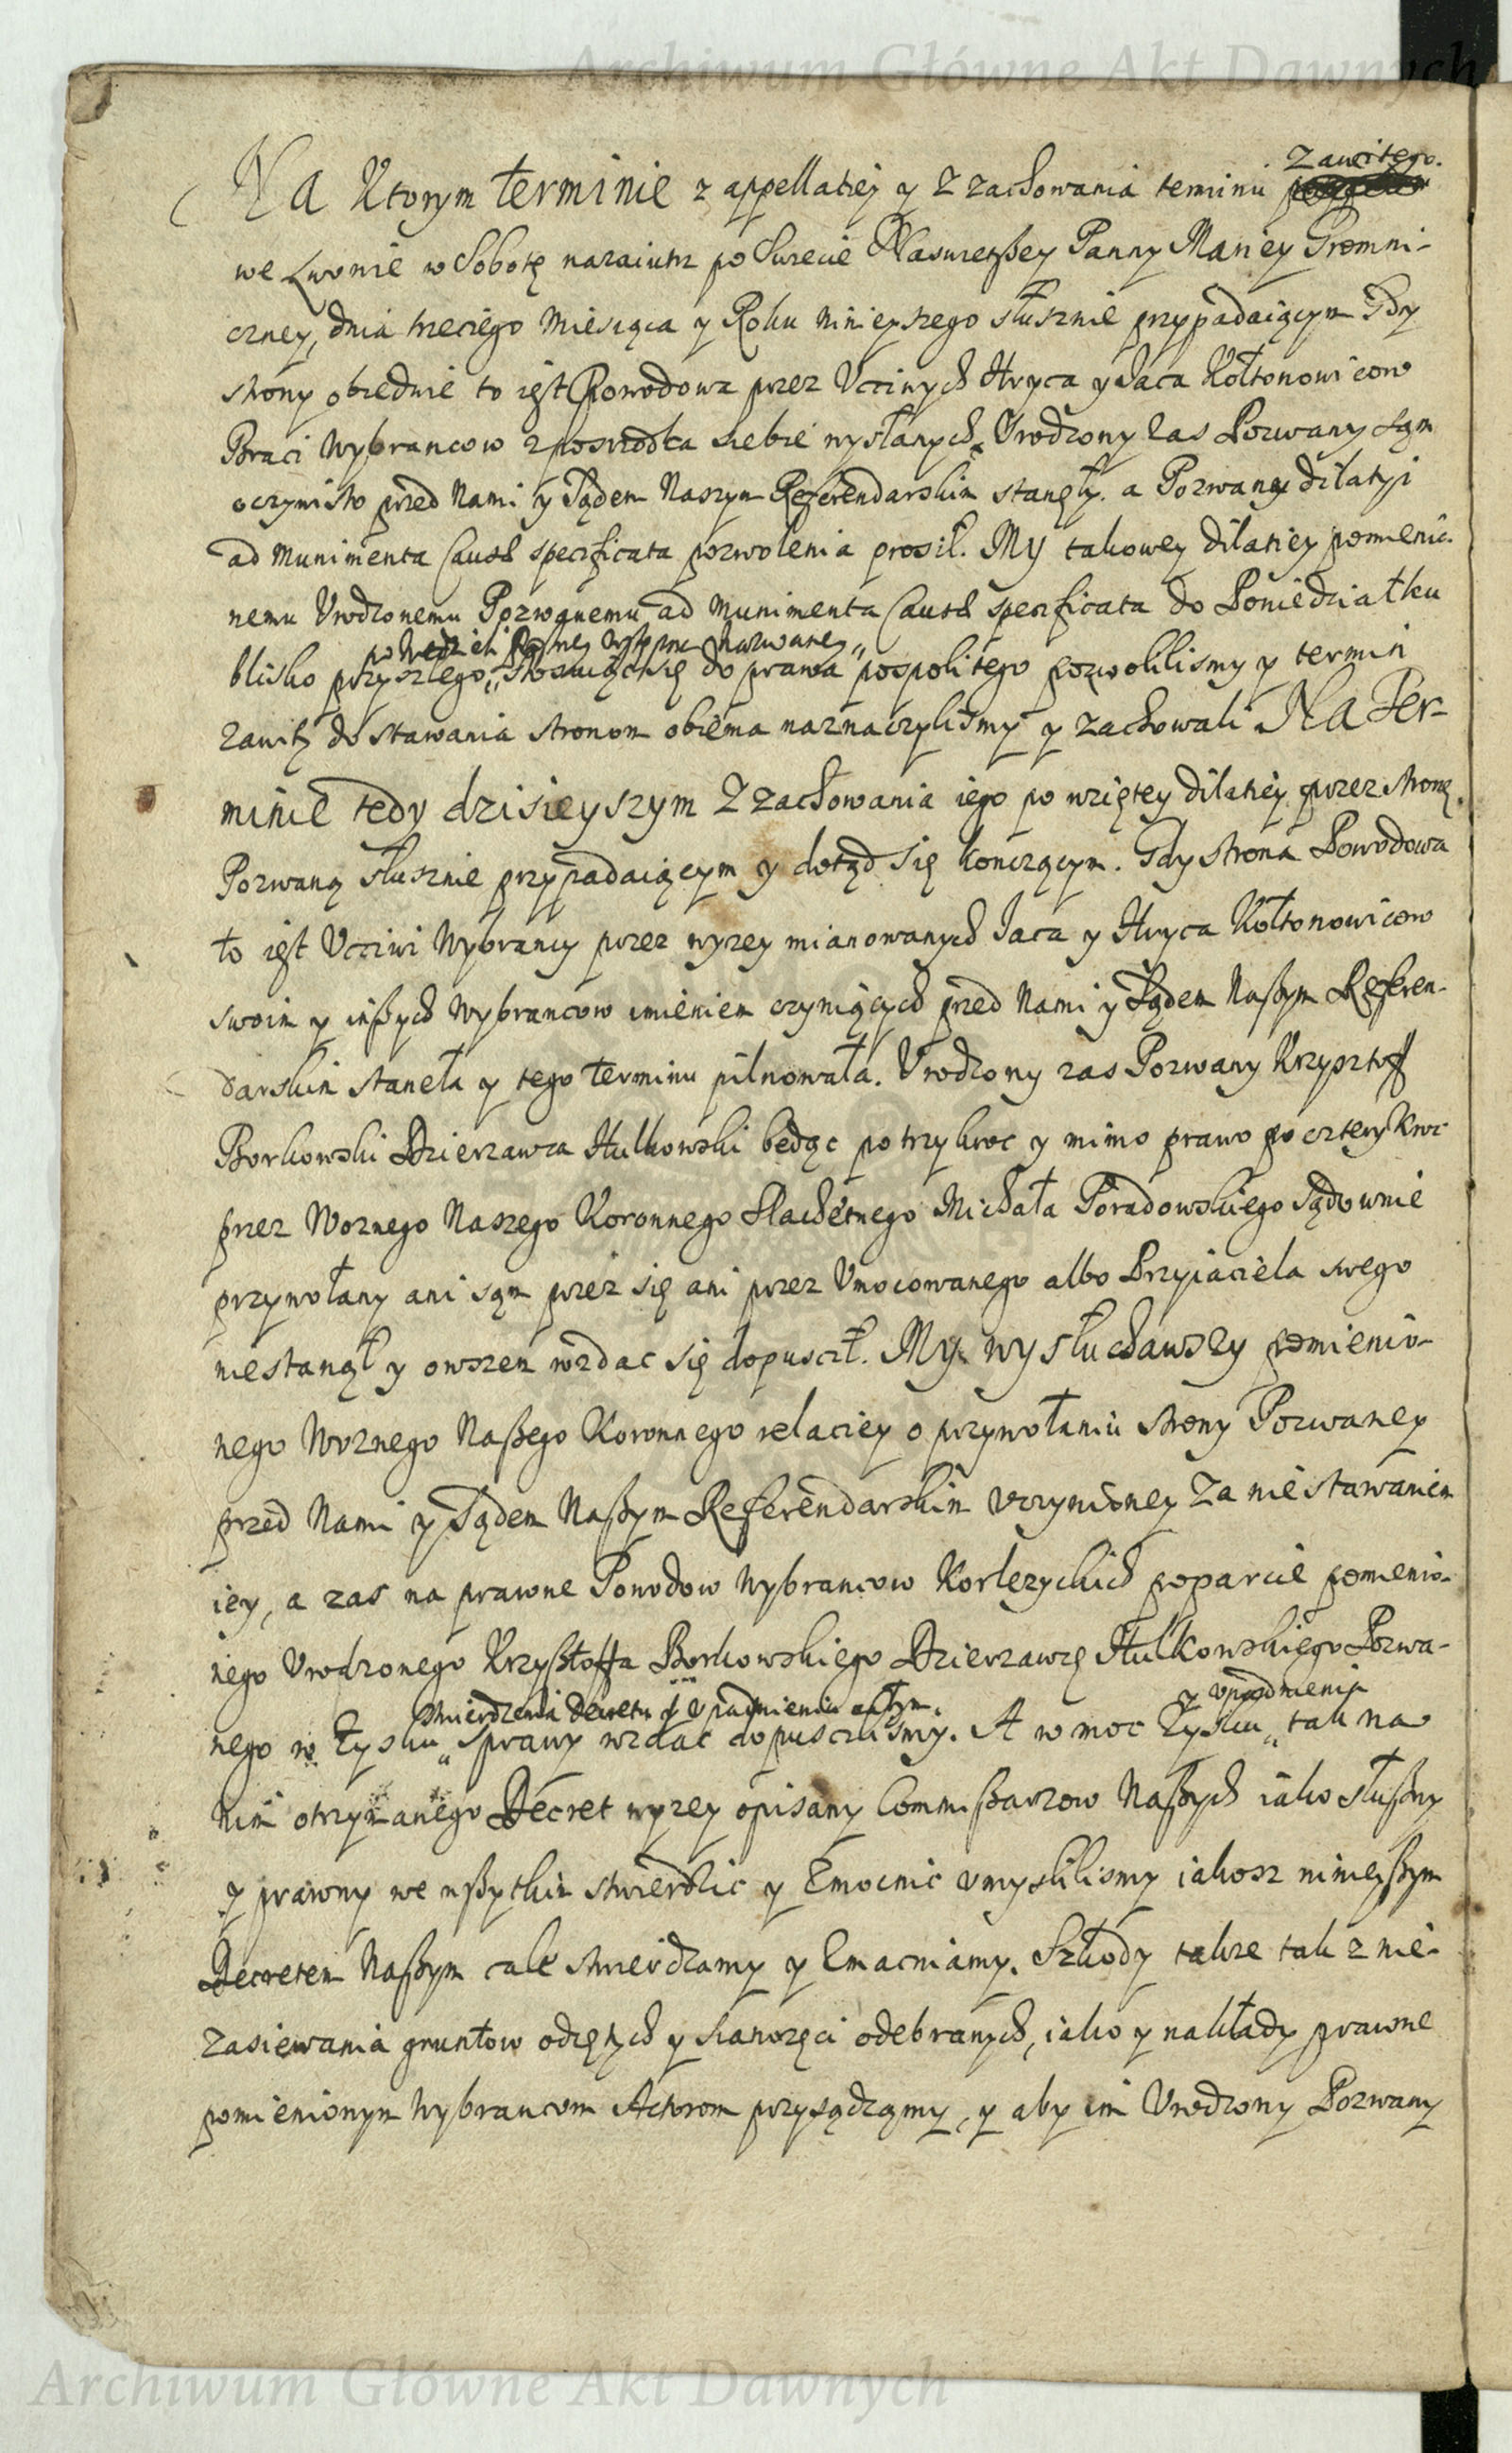 Archiwum Główne Akt Dawnych
Zawitego.
Na Ktorym terminie z appellatiey y z zachowania teminu
we Lwowie w Sobotę nazaiutrz po Swiecie Naswietszey Panny Mariey Gromni-
czney, dnia trzeciego Miesiąca y Roku Ninieyszego słusznie przypadaiącym Gdy
strony obiedwie to iest Powodowa przez Ucciwych Hryca y Iaca Kołtonowicow
Braci Wybrancow zposrodka siebie wysłanych, Vrodzony zas Pozwany sąm
oczywisto przed Nami y Sądem Naszym Referendarskim stanęły. a Pozwany dilatyi
ad Munimenta Causæ specificata pozwolenia prosił. My takowey dilatiey pomienio-
nemu Vrodzonemu Pozwąnemu ad Munimenta Causæ specificata do Poniedziałku
po Niedzieli Postney Wstępne nazwaney
blisko przyszlego, stosuiąc się do prawa pospolitego pozwolilismy y termin
zawity do stawania stronom obiema naznaczylismy y zachowali Na Ter-
minie tedy dzisieyszym z zachowania iego po wziętey dilatiey przez stronę
Pozwaną słusznie przypadaiącym y dotąd się konczącym. Gdy strona Powodowa
to iest Ucciwi Wybrancy przez wyzey mianowanych Iaca y Hryca Kołtonowicow
swoim y inszych Wybrancow imieniem czyniących przed Nami y Sądem Naszym Referen-
darskim staneła y tego terminu pilnowała. Vrodzony zas Pozwany Krzysztoff
Borkowski Dzierzawca Hulkowski będąc po trzykroc y mimo prawo po czterykroc
przez Woznego Naszego Koronnego Slachetnego Michała Poradowskiego sądownie
przywołany ani sąm przez się ani przez Umocowanego albo Przyiaciela swego
niestanął y owszem wzdac się dopuscił. My wysłuchawszy pomienio-
nego Woznego Naszego Koronnego relaciey o przywołaniu strony Pozwaney
przed Nami y Sądem Naszym Referendarskim uczynioney za niestawaniem
iey, a zas na prawne Powodow Wybrancow Korlezyckich poparcie pomienio-
nego Vrodzonego Krzysztoffa Borkowskiego Dzierzawcę Hulkowskiego Pozwa-
stwierdzenia Decretu y upadnieniu całym y upadnienia
nego w Zysku sprawy wzdać dopuscilismy. A w moc Zysku tak na
nim otrzymanego Decret wyzey opisany Commissarzow Naszych iako słuszny
y prawny we wszytkim stwierdzic y Zmocnic umyslilismy iakosz ninieyszym
Decretem Naszym cale stwierdzamy y Zmacniamy. Szkody takze tak z nie-
zasiewania gruntow odiętych y sianozęci odebranych, iako y nakłady prawne
pomienionym Wybrancom Actorom przysądzamy, y aby im Vrodzony Pozwany
Archiwum Główne Akt Dawnych